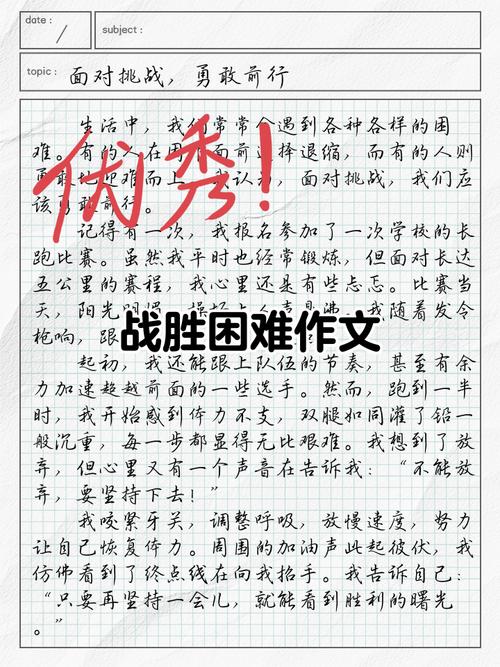 date :
subject :
topic : 面对挑战，勇敢前行
生活中，我们常常会遇到各种各样的困
难。有的人在困 面前选择退缩，而有的人则
勇敢地迎难而上 我认为，面对挑战，我们应
该勇敢前行。
优秀！
记得有一次，我报名参加了一次学校的长
跑比赛。虽然我平时也经常锻炼，但面对长达
五公里的赛程，我心里还是有些忐忑。比赛当
天，阳光明媚，操场上人声鼎沸。我随着发令
枪响，跟
战胜困难作文
起初，我还能跟上队伍的节奏，甚至有余
力加速超越前面的一些选手。然而，跑到一半
时，我开始感到体力不支，双腿如同灌了铅一
般沉重，每一步都显得无比艰难。我想到了放
弃，但心里又有一个声音在告诉我：“不能放
弃，要坚持下去！”
我咬紧牙关，调整呼吸，放慢速度，努力
让自己恢复体力。周围的加油声此起彼伏，我
仿佛看到了终点线在向我招手。我告诉自己：
“只要再坚持一会儿，就能看到胜利的曙光
。”